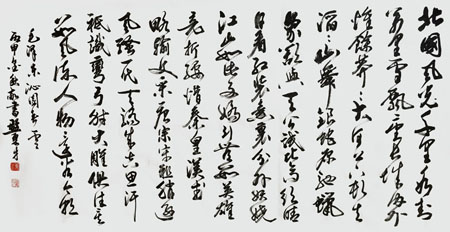 北國風光千里冰封
萬里雪飄望長城內外
惟餘莽莽大河上下頓失
滔滔山舞銀蛇原馳蠟
象欲與天公試比高須晴
日看紅裝素裹分外妖嬈
江山如此多嬌引無數英雄
競折腰惜秦皇漢武
略輸文采唐宗宋祖稍遜
風騷一代天驕成吉思汗
祇識彎弓射大雕俱往矣
數風流人物還看今朝
毛澤東沁園春雪
丙申